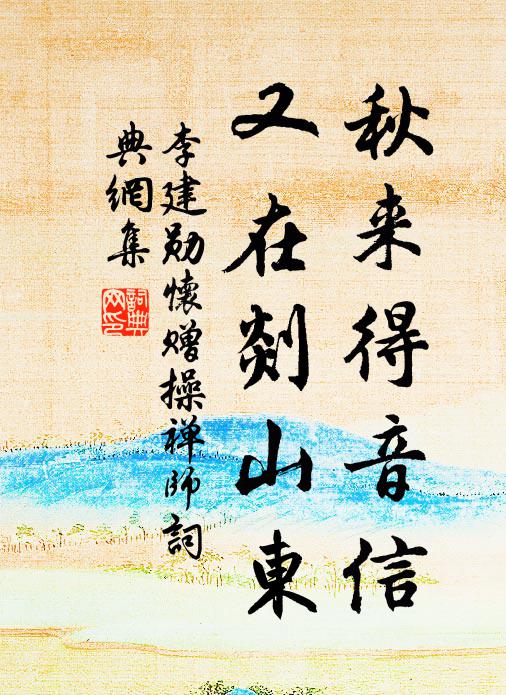 秋来得音信
又在剡山東
李建勋懷贈操禅師詞
典網集
詞典网印